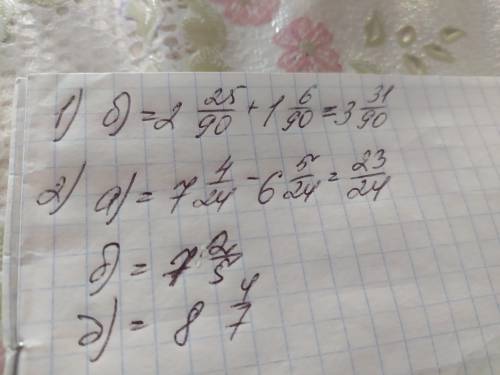 1) б) = 2 25/90 + 1 6/90 = 3 31/90
2) а) = 7 4/24 - 6 5/24 = 23/24
б) = 7 2/5
д) = 8 4/7